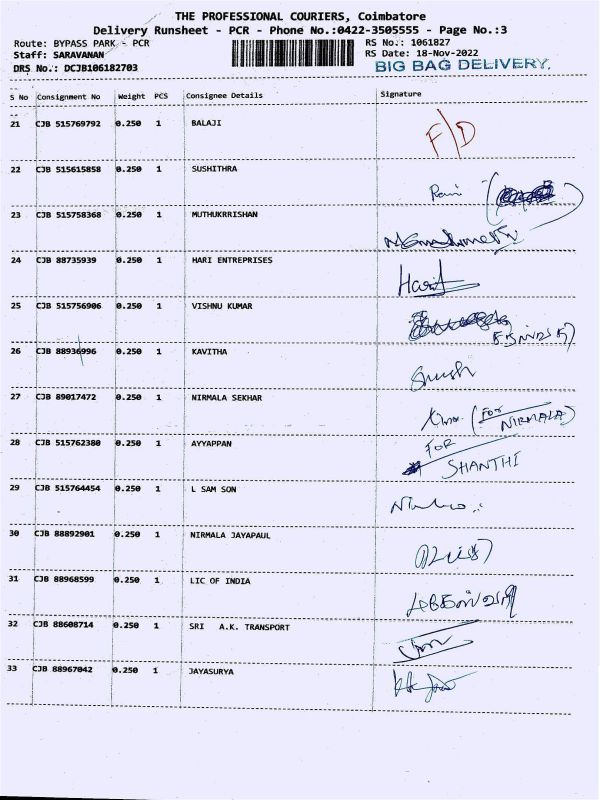 THE PROFESSIONAL COURIERS, Coimbatore
Delivery Runsheet - PCR - Phone No.:0422-3505555 - Page No.:3
Route: BYPASS PARK - PCR
RS No.: 1061827
Staff: SARAVANAN
RS Date: 18-Nov-2022
DRS No.: DCJB106182703
BIG BAG DELIVERY.
S No Consignment No Weight PCS Consignee Details Signature
21 CJB 515769792 0.250 1 BALAJI F/D
22 CJB 515615858 0.250 1 SUSHITHRA Rani
23 CJB 515758368 0.250 1 MUTHUKRRISHAN
24 CJB 88735939 0.250 1 HARI ENTREPRISES Hari
25 CJB 515756906 0.250 1 VISHNU KUMAR
26 CJB 88936996 0.250 1 KAVITHA
27 CJB 89017472 0.250 1 NIRMALA SEKHAR (FOR NIRMALA)
28 CJB 515762380 0.250 1 AYYAPPAN FOR SHANTHI
29 CJB 515764454 0.250 1 L SAM SON
30 CJB 88892901 0.250 1 NIRMALA JAYAPAUL
31 CJB 88968599 0.250 1 LIC OF INDIA
32 CJB 88608714 0.250 1 SRI A.K. TRANSPORT
33 CJB 88967042 0.250 1 JAYASURYA